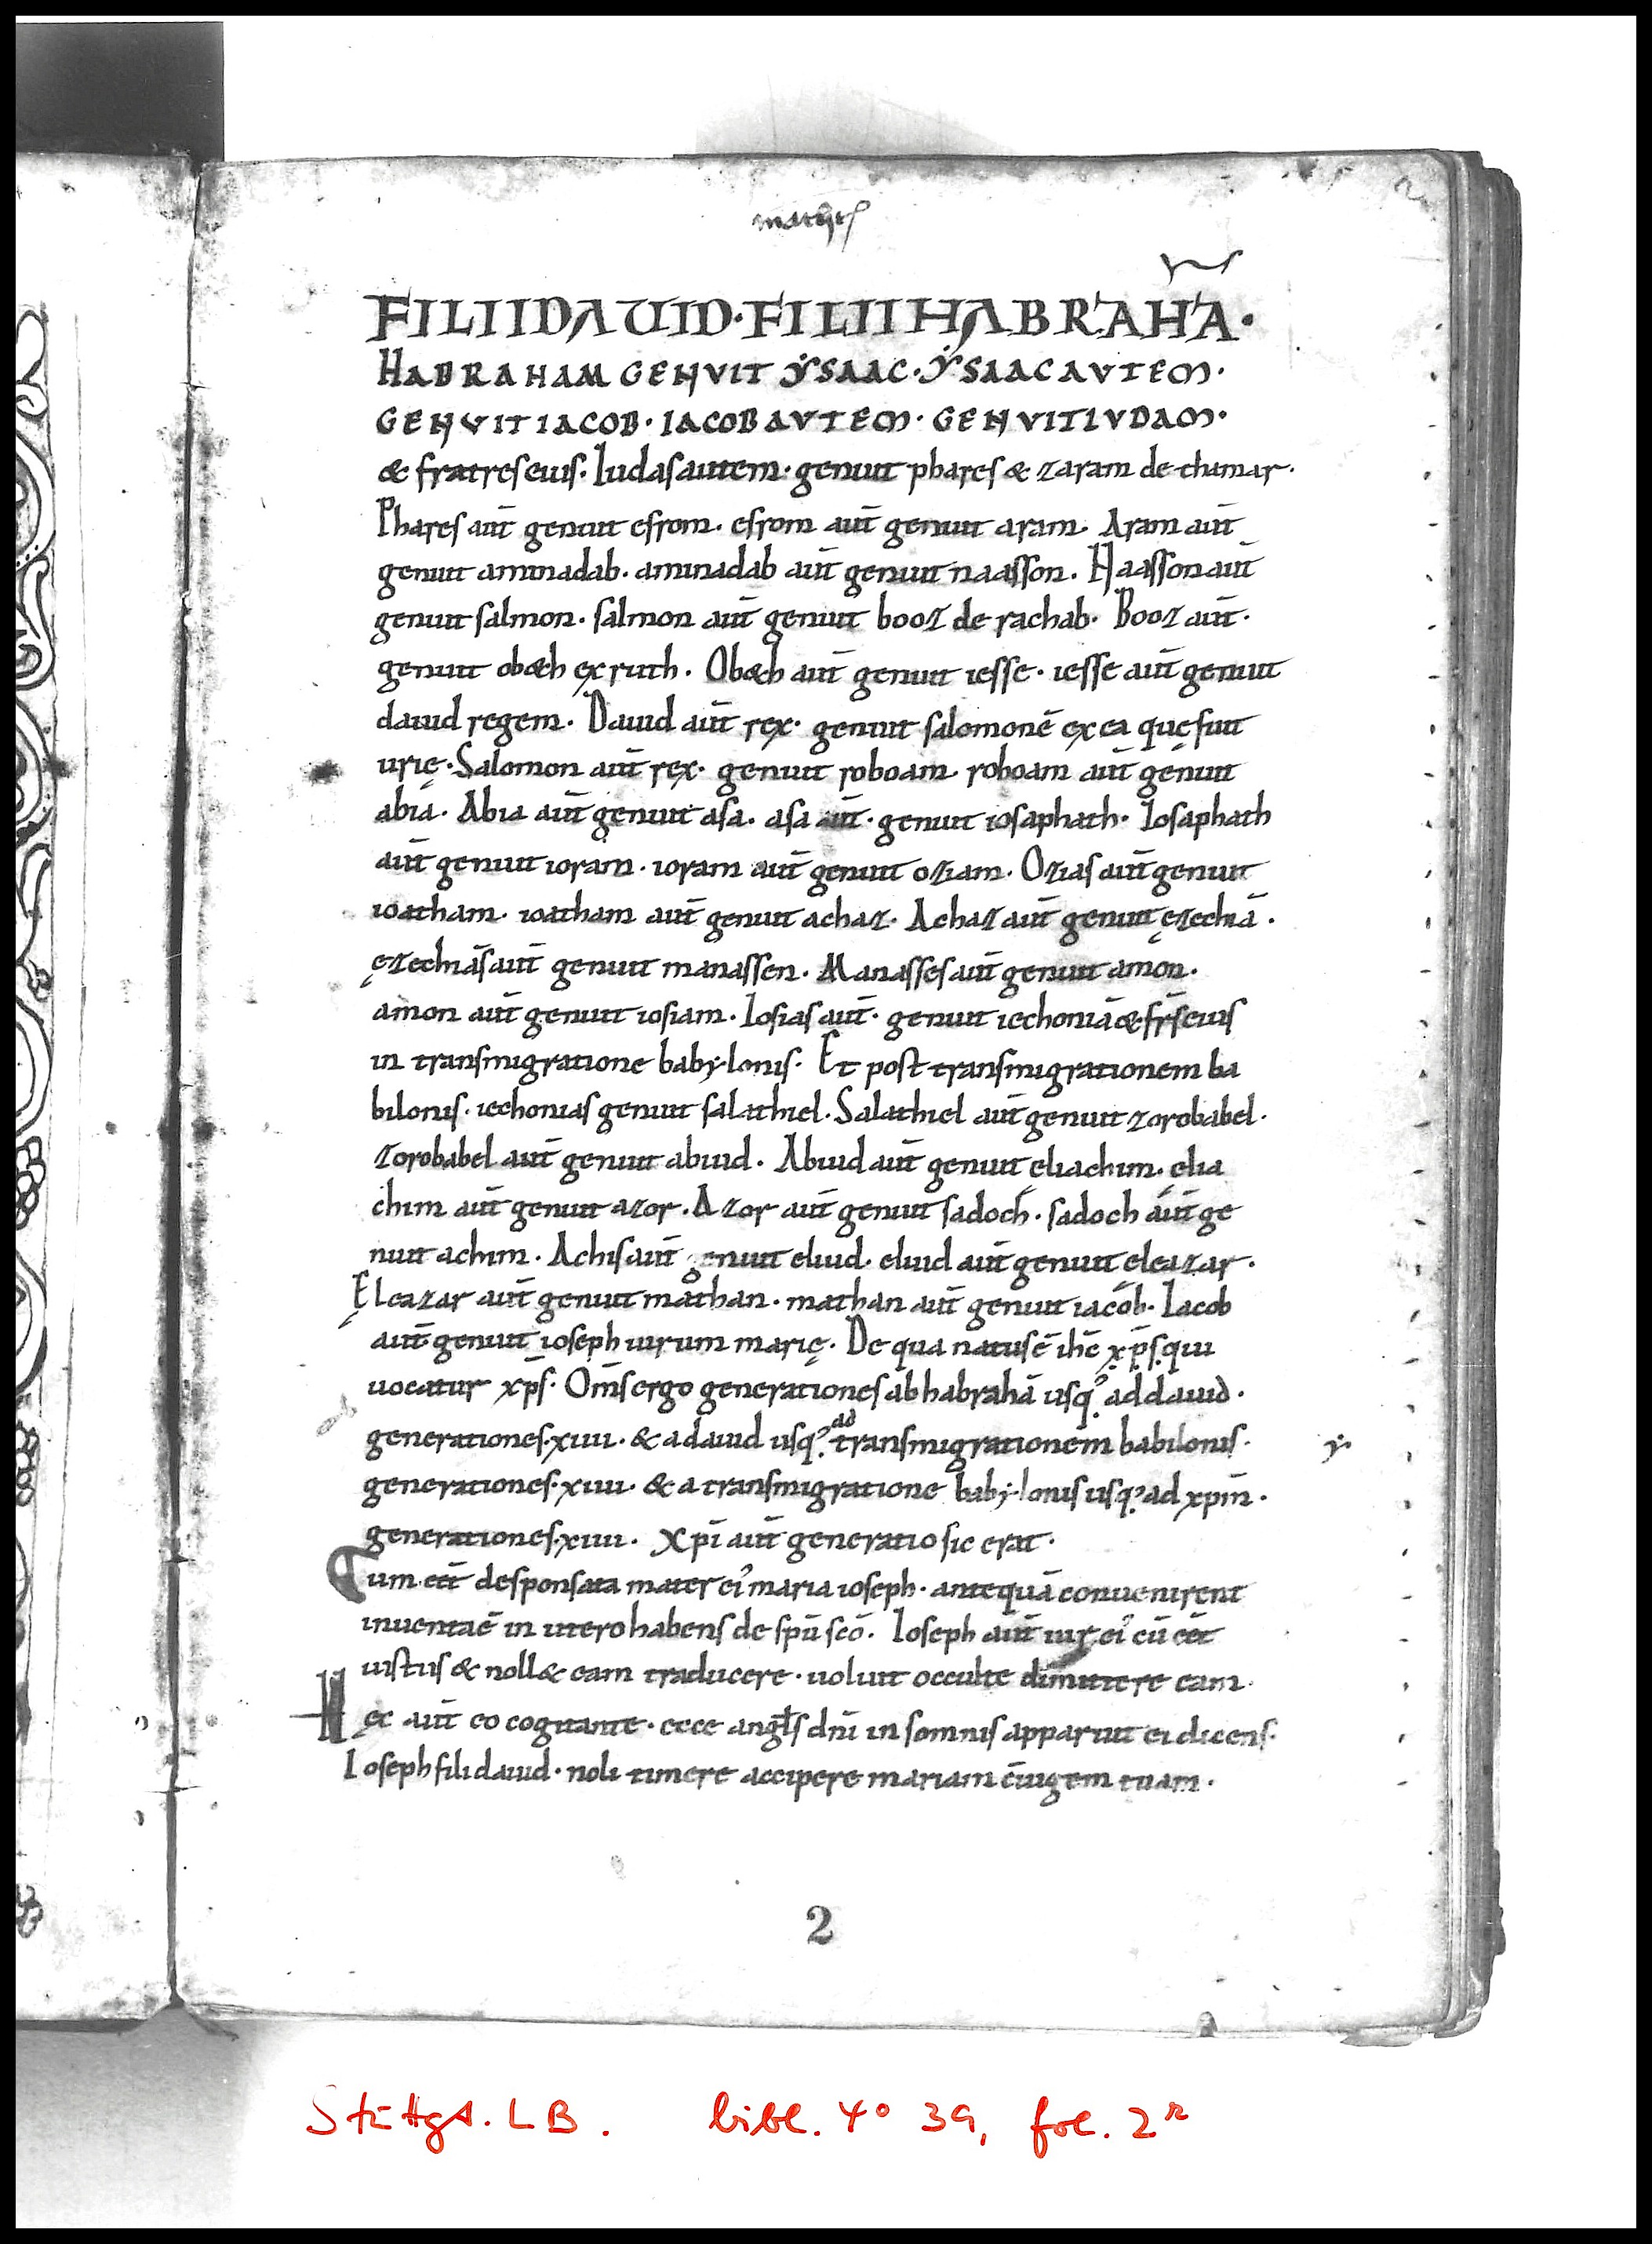 FILII DAUID · FILII HABRAHĀ ·
HABRAHAM GENVIT ẎSAAC · ẎSAAC AVTEM ·
GENVIT IACOB · IACOB AVTEM · GENVIT IVDAM ·
& fratres eius · Iudas autem · genuit phares & zaram de thamar ·
Phares aut̄ genuit esrom · esrom aut̄ genuit aram · Aram aut̄
genuit aminadab · aminadab aut̄ genuit naasson · Naasson aut̄
genuit salmon · salmon aut̄ genuit booz de rachab · Booz aut̄ ·
genuit ob&h ex ruth · Ob&h aut̄ genuit iesse · iesse aut̄ genuit
dauid regem · Dauid aut̄ rex · genuit salomonē ex ea quę fuit
urię · Salomon aut̄ rex · genuit roboam · roboam aut̄ genuit
abia · Abia aut̄ genuit asa · asa aut̄ · genuit iosaphath · Iosaphath
aut̄ genuit ioram · ioram aut̄ genuit oziam · Ozias aut̄ genuit
ioatham · ioatham aut̄ genuit achaz · Achaz aut̄ genuit ęzechiā ·
ęzechias aut̄ genuit manassen · Manasses aut̄ genuit amon ·
amon aut̄ genuit iosiam · Iosias aut̄ · genuit iechoniā & fr̄s eius
in transmigratione babẏlonis · Et post transmigrationem ba
bilonis · iechonias genuit salathiel · Salathiel aut̄ genuit zorobabel ·
Zorobabel aut̄ genuit abiud · Abiud aut̄ genuit eliachim · ęlia
chim aut̄ genuit azor · Azor aut̄ genuit sadoch · sadoch aut̄ ge
nuit achim · Achis aut̄ genuit eliud · eliud aut̄ genuit eleazar ·
Ęleazar aut̄ genuit mathan · mathan aut̄ genuit iacob · Iacob
aut̄ genuit ioseph uirum marię · De qua natus ē ih̄c xp̄s qui
uocatur xp̄s · Om̄s ergo generationes ab habrahā usq; ad dauid ·
generationes · xiiii · & a dauid usq; ad transmigrationem babilonis ·
generationes · xiiii · & a transmigratione babẏlonis usq; ad xpm̄ ·
generationes · xiiii · Xpī aut̄ generatio sic erat ·
Cum eēt desponsata mater ei' maria ioseph · antequā conuenirent
inuenta ē in utero habens de spū scō · Ioseph aut̄ uir ei' cū eēt
iustus & noll& eam traducere · uoluit occulte dimittere eam ·
Hęc aut̄ eo cogitante · ecce angl̄s dnī in somnis apparuit ei dicens ·
Ioseph fili dauid · noli timere accipere mariam c̄iugem tuam ·
ẏ
2
Stuttgt. LB. bibl. 4° 39, fol. 2r